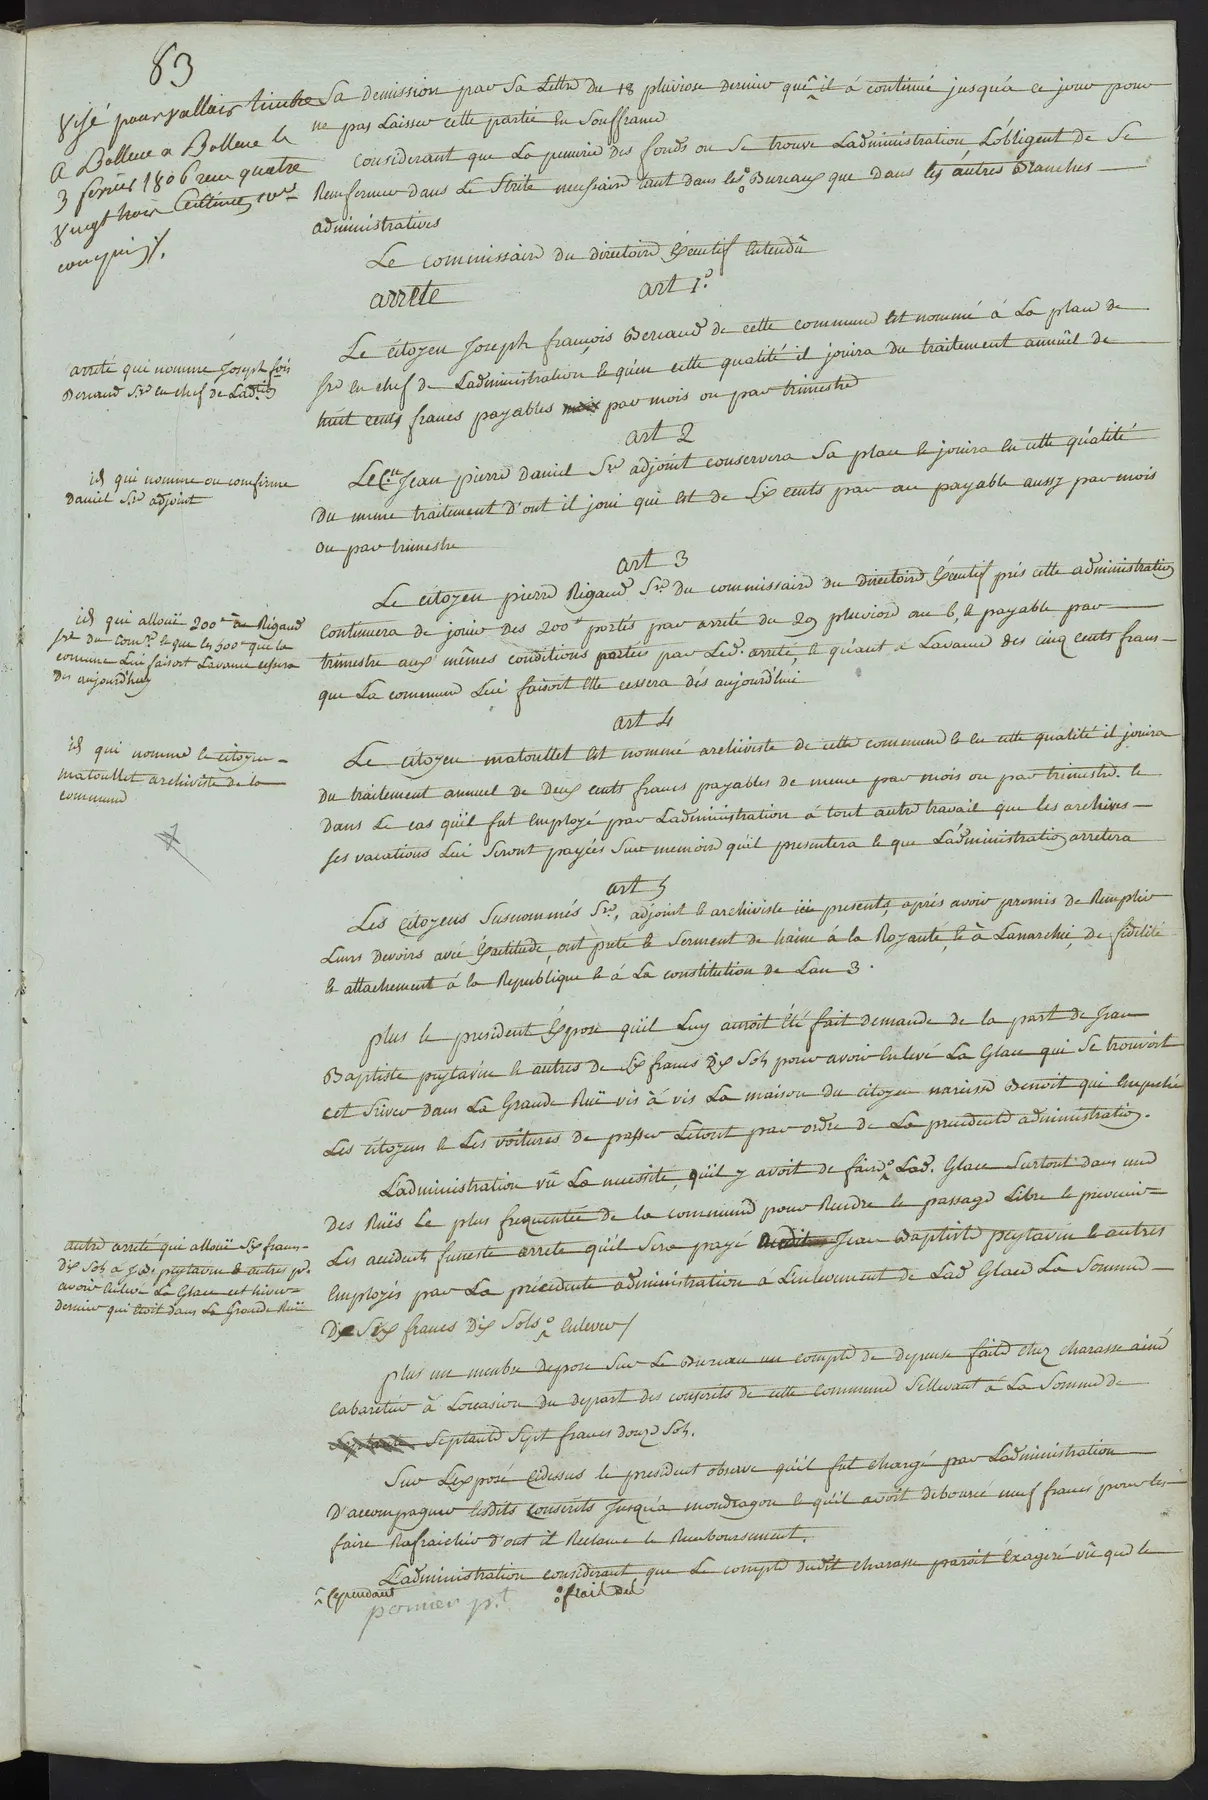 83
Visé pour valloir timbre
a Bollene a Bollene le
3 fevrier 1806 recu quatre
vingt trois Centimes
compris /.
Sa demission par Sa Lettre du 18 pluviose dernier quê il á continué jusquá ce jour pour
ne pas Laisser cette partie En Souffrance
Considerant que La penurie des fonds ou Se trouve Ladministration L'obligent de Se
Renfermer dans Le Strite necessaire tant dans les Bureaux que dans les autres Branches
administratives
Le commissaire du directoire Éxécutif Entendû
arrete
art 1.°
Le citoyen Joseph françois Deriaud de cette commune Est nommé à La place de
Sre en chef de Ladministration, & qu'en cette qualité il jouira du traitement annuël de
huit cents francs payables par mois ou par trimestre
arreté qui nomme Joseph fois
Deriaud Sre en chef de Lad.tion
art 2
Le C.en Jean pierre Daniel Sre adjoint conservera Sa place & jouira En cette quálité
Du meme traitement d'ont il joui qui Est de Six cents par an payable aussy par mois
ou par trimestre
id qui nomme ou comfirme
Daniel Sre adjoint
art 3
Le citoyen pierre Rigaud Sre du commissaire du directoire Éxécutif prés cette administration
Continuera de jouir des 200# portés par arreté du 29 pluviose an 6, & payable par
trimestre aux mêmes conditions portées par Led. arreté, & qu'ant à Lavance des cinq cents frans
que La commune Lui faisoit Elle cessera dés aujourd'hui
id qui allouë 200# à Rigaud
Sre du Com.re & que les 500# que la
commune Lui faisoit Lavance cessera
Dés aujourd'huy
art 4
Le citoyen matoullet Est nommé archiviste de cette commune & En cette qualité il jouira
du traitement annuel de Deux cents francs payables de meme par mois ou par trimestre. &
Dans Le cas qu'il fut Employé par Ladministration á tout autre travail que les archives
Ses vacations Lui Seront payées Sur memoire qu'il presentera & que Ladministration arretera
id qui nomme le citoyen
matoullet archiviste de la
commune
art 5
Les citoyens Susnommés Sre, adjoint & archiviste ici presents, aprés avoir promis de Remplir
Leurs Devoirs avec Éxactitude, ont preté le Serment de haine á la Royauté, & à Lanarchie, de fidélité
& attachement á la Republique & á La constitution de Lan 3.
plus le president Expose qu'il Luy auroit Été fait demande de la part de Jean
Baptiste peytavin & autres de Six francs Dix Sols pour avoir Enlevé La Glace qui Se trouvoit
cet hiver dans La Grande Ruë vis à vis La maison du citoyen narcisse Benoit qui Empeché
Les citoyens & Les voitures de passer Letout par ordre de La precedente administration.
Ladministration vû La necessité, qu'il y avoit de faire Lad. Glace Surtout dans une
Des Ruës Le plus frequentée de la commune pour Rendre le passage Libre & prevenir
Les accidents funeste arrete qu'il Sera payé Jean Baptiste peytavin & autres
Employés par La précedente administration á Lenlevement de Lad Glace La Somme
De Six francs Dix Sols Enlever /
autre arreté qui allouë Six frans
Dix Sols a J.Bte peytavin & autres pr.
avoir Enlevé La Glace cet hiver
dernier qui Etoit dans La Grande Ruë
plus un membre Depose Sur Le Bureau un compte de depense faite chez charasse ainé
Cabaretier á Loccasion du depart des conscrits de cette commune S'ellevant á La Somme de
Septante Sept francs douze Sols.
Sur Lexposé Cidessus le president observe qu'il fut chargé par Ladministration
D'accompagner Lesdits Conscrits Jusqu'a mondragon & qu'il avoit deboursé neuf francs pour les
faire Rafraichir d'ont il Reclame le Remboursement.
Ladministration considerant que Le compte dudit charasse paroit Exageré vû que le
^ Cependant
pomier p.t